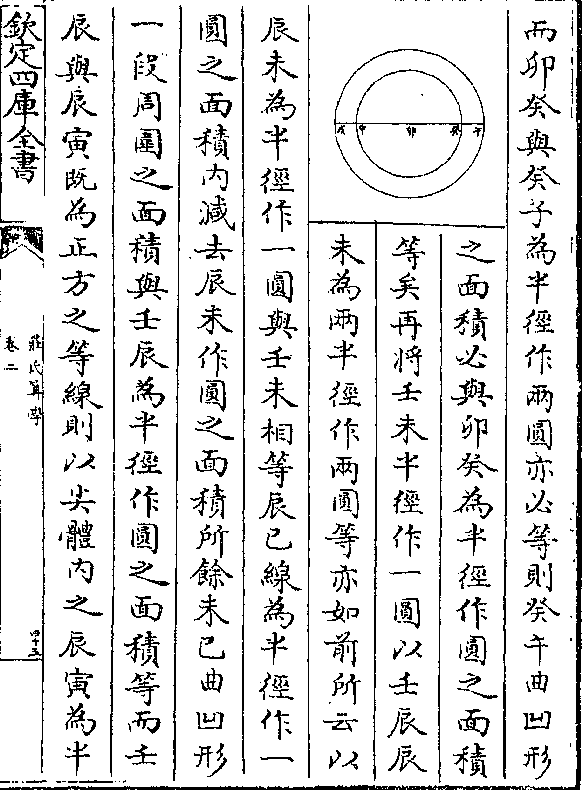 而卯癸與癸子為半徑作兩圓亦必等則癸午曲凹形
之面積必與卯癸為半徑作圓之面積
等矣再將壬未半徑作一圓以壬辰辰
未為兩半徑作兩圓等亦如前所云以
戌 申 卯 癸 午
辰未為半徑作一圓與壬未相等辰已線為半徑作一
圓之面積內減去辰未作圓之面積所餘未已曲凹形
一段周圍之面積與壬辰為半徑作圓之面積等而壬
辰與辰寅既為正方之等線則以尖體內之辰寅為半
欽定四庫全書
莊氏算學
卷二
四十五